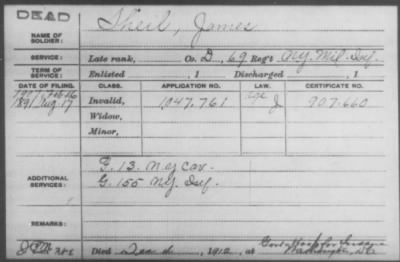 DEAD
Sheil, James
NAME OF SOLDIER:
SERVICE: Late rank, Co. D, 69 Reg't N.Y. Mil. Inf.
TERM OF SERVICE: Enlisted , 1 Discharged , 1
DATE OF FILING. CLASS. APPLICATION NO. LAW. CERTIFICATE NO.
1907 Feb 26 Age
1891 Aug. 17 Invalid, 1047.761 J 907.660
Widow,
Minor,
ADDITIONAL SERVICES: F. 13. N.Y. Cav.
G. 155 N.Y. Inf.
REMARKS: Gov't Hosp for Insane
Died Dec 6, 1912, at Washington, D.C.